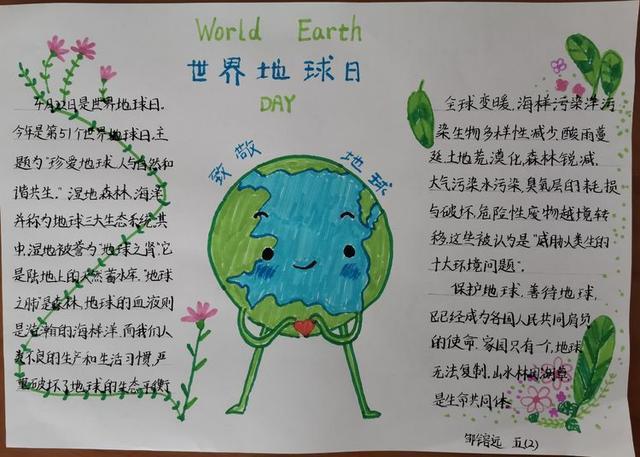 World Earth
世界地球日
DAY
致敬 地球
4月22日是世界地球日。
今年是第51个世界地球日,主
题为“珍爱地球,人与自然和
谐共生。”湿地森林、海洋
并称为地球三大生态系统,其
中,湿地被誉为“地球之肾”,它
是陆地上的天然蓄水库。“地球
之肺”是森林,地球的血液则
是浩瀚的海林洋。而我们人
类不良的生产和生活习惯,严
重破坏了地球的生态平衡
全球变暖、海样污染洋污
染生物多样性减少,酸雨蔓
延土地荒漠化,森林锐减、
大气污染水污染,臭氧层的耗损
与破坏,危险性废物越境转
移,这些被认为是“威胁人类生的
十大环境问题”。
保护地球,善待地球,
已已经成为各国人民共同肩负
的使命。家园只有一个,地球
无法复制。山水林田湖草
是生命共同体
邹镕远 五(2)